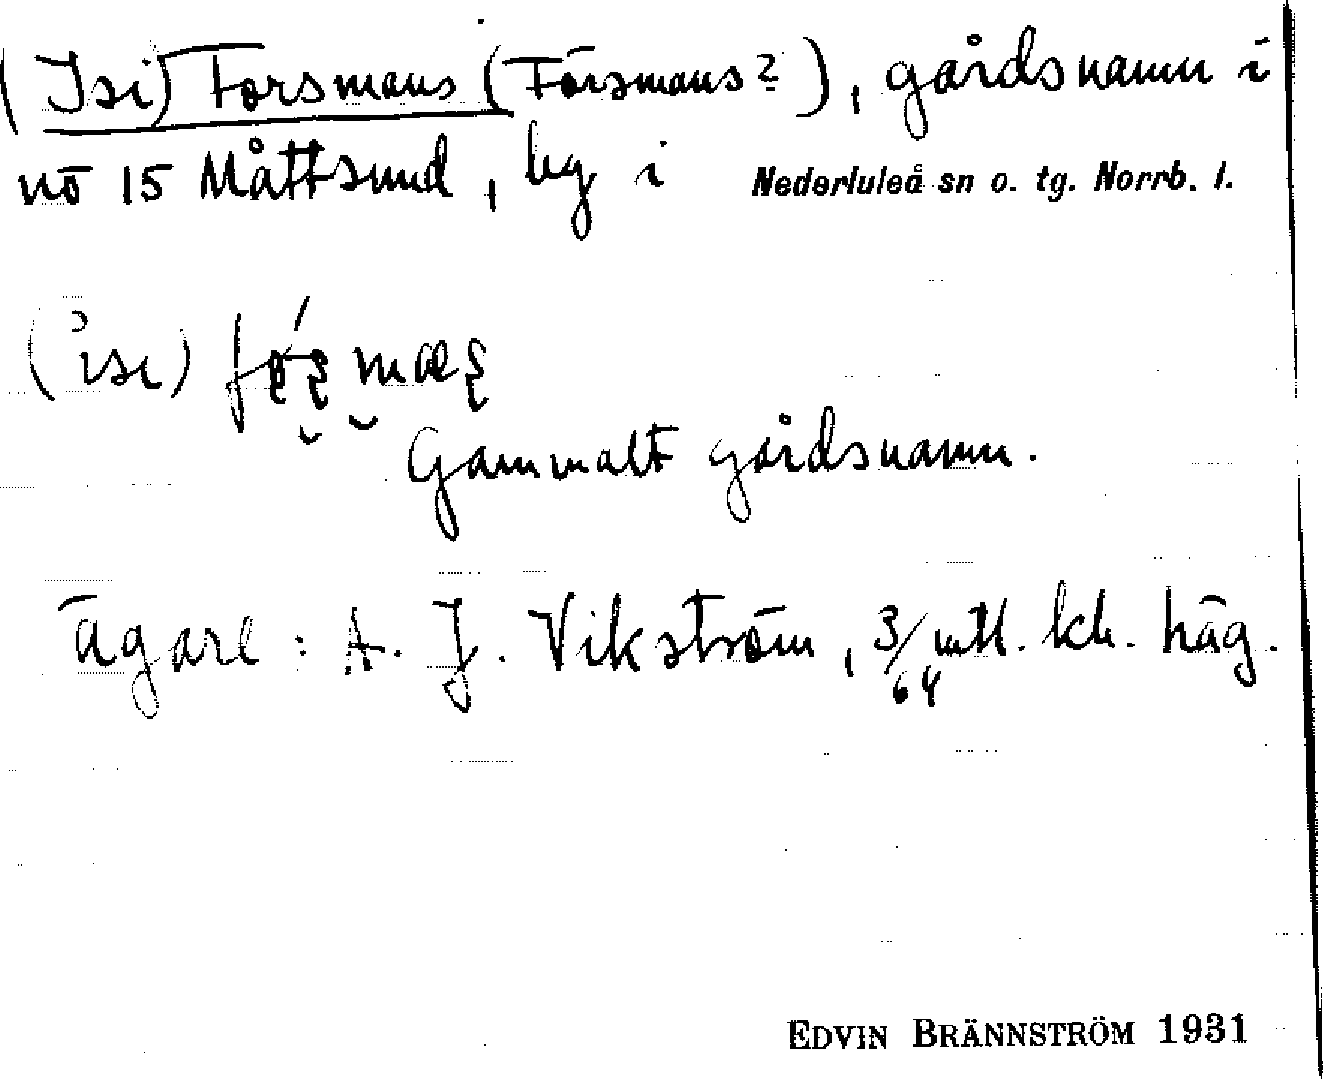 (Isi) Forsmans (Försmans?), gårdsnamn i
nö 15 Måttsund, by i Nederluleå sn o. tg. Norrb. l.
(isi)
Gammalt gårdsnamn.
ägare: A. J. Vikström, 3/64 mtl. kr. häg.
EDVIN BRÄNNSTRÖM 1931